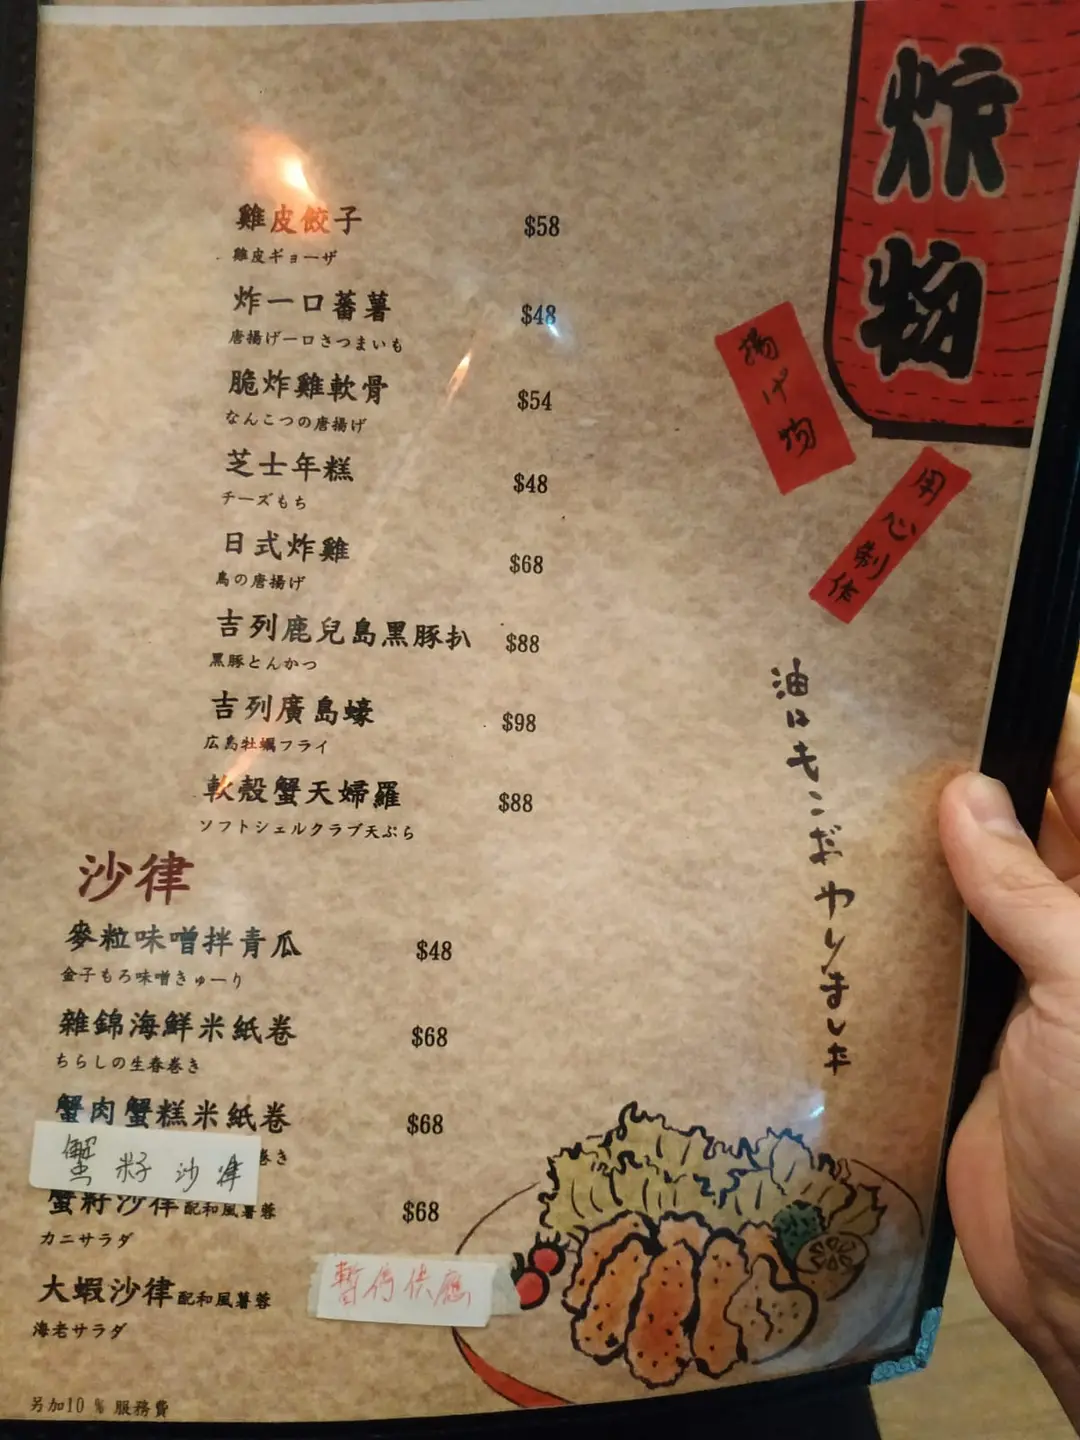 炸物
揚げ物
用心製作
油はもこだやりました
雞皮餃子 $58
雞皮ギョーザ
炸一口蕃薯 $48
唐揚げ一口さつまいも
脆炸雞軟骨 $54
なんこつの唐揚げ
芝士年糕 $48
チーズもち
日式炸雞 $68
鳥の唐揚げ
吉列鹿兒島黑豚扒 $88
黒豚とんかつ
吉列廣島蠔 $98
広島牡蠣フライ
軟殼蟹天婦羅 $88
ソフトシェルクラブ天ぷら
沙律
麥粒味噌拌青瓜 $48
金子もろ味噌きゅーり
雜錦海鮮米紙卷 $68
ちらしの生春巻き
蟹肉蟹糕米紙卷 $68
巻き
蟹籽沙律
蟹籽沙律配和風薯蓉 $68
カニサラダ
大蝦沙律配和風薯蓉 暫停供應
海老サラダ
另加10 % 服務費